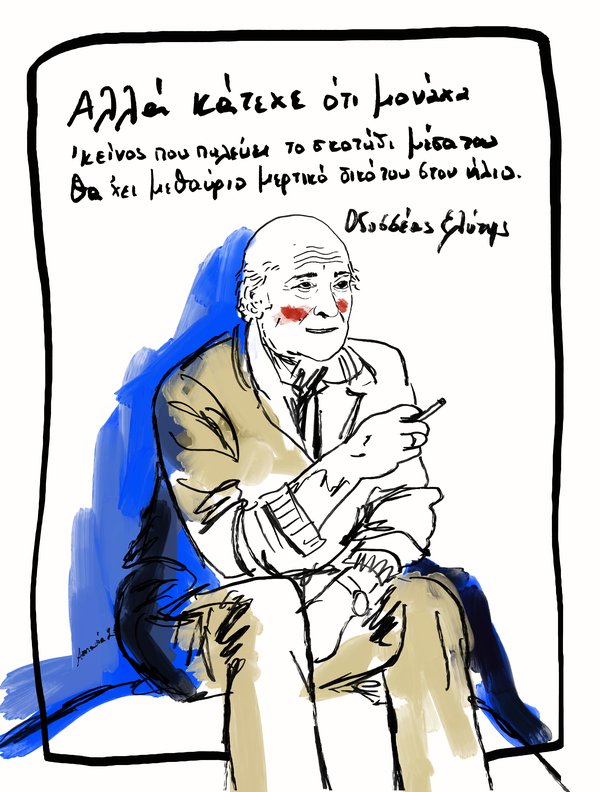 Αλλά κάτεχε ότι μονάχα
'κείνος που παλεύει το σκοτάδι μέσα του
θα 'χει μεθαύριο μερτικό δικό του στον ήλιο.
Οδυσσέας Ελύτης